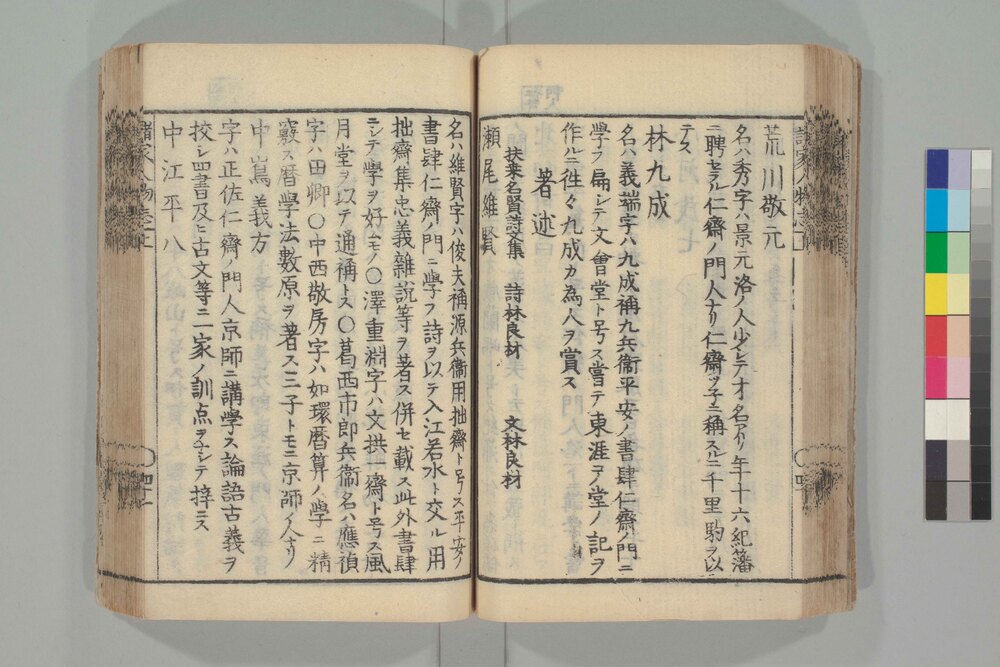 荒川敬元
名ハ秀字ハ景元洛ノ人少シテ才名アリ年十六紀藩
ニ聘セラル仁齋ノ門人ナリ仁齋ツ子ニ稱スルニ千里駒ヲ以
テス
林九成
名ハ義端字ハ九成稱九兵衞平安ノ書肆仁齋ノ門ニ
學フ扁シテ文會堂ト号ス嘗テ東涯ヲ堂ノ記ヲ
作ルニ徃々九成カ為人ヲ賞ス
著述
扶桒名賢詩集 詩林良材 文林良材
瀬尾維賢
名ハ維賢字ハ俊夫稱源兵衞用拙齋ト号ス平安ノ
書肆仁齋ノ門ニ學フ詩ヲ以テ入江若水ト交ル用
拙齋集忠義雜說等ヲ著ス併セ載ス此外書肆
ニシテ學ヲ好ムモノ〇澤重淵字ハ文拱斎ト号ス風
月堂ヲ以テ通稱トス〇葛西市郎兵衞名ハ應禎
字ハ田卿〇中西敬房字ハ如環暦算ノ學ニ精
竅ス暦學法數原ヲ著ス三子トモニ京師ノ人ナリ
中嶌義方
字ハ正佐仁齋ノ門人京師ニ講學ス論語古義ヲ
校シ四書及ヒ古文等ニ一家ノ訓点ヲナシテ梓ニス
中江平八
諸家人物志上
四十一